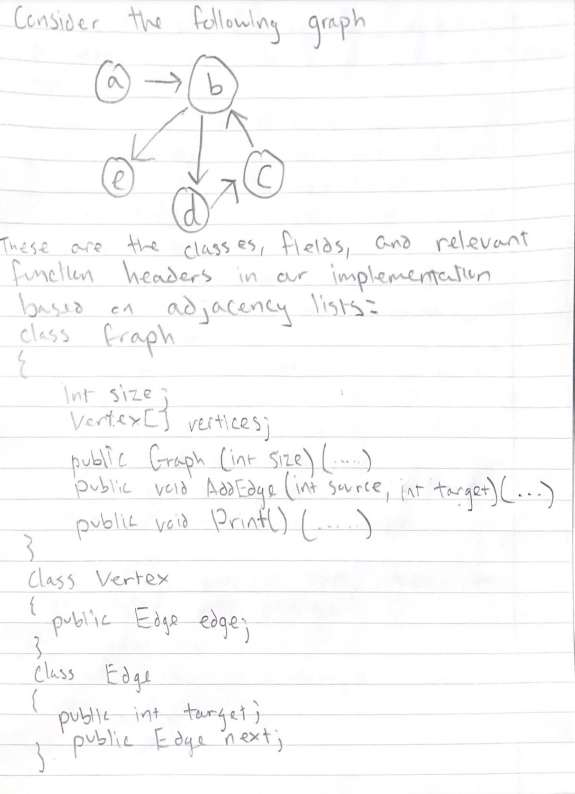 Consider the following graph
a b
e c
d
These are the classes, fields, and relevant
function headers in our implementation
based on adjacency lists:
class Graph
{
int size;
Vertex[] vertices;
public Graph (int size) (.....)
public void AddEdge (int source, int target) (...)
public void Print() (.....)
}
class Vertex
{
public Edge edge;
}
class Edge
{
public int target;
public Edge next;
}